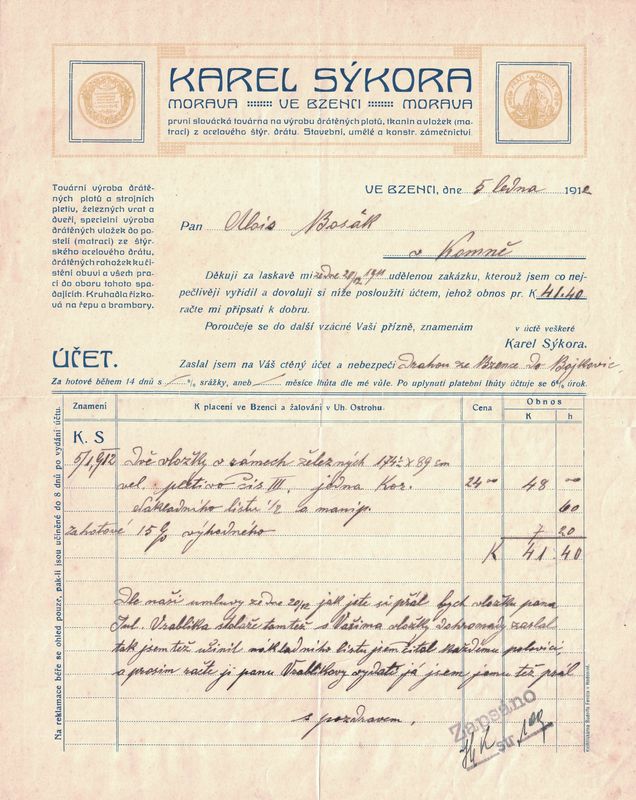 KAREL SÝKORA
MORAVA VE BZENCI MORAVA
první slovácká továrna na výrobu drátěných plotů, tkanin a vložek (ma-
trací) z ocelového štýr. drátu. Stavební, umělé a konstr. zámečnictví
Tovární výroba drátě-
ných plotů a strojních
pletiv, železných vrat a
dveří, specielní výroba
drátěných vložek do po-
stelí (matrací) ze štýr-
ského ocelového drátu,
drátěných rohožek ku či-
stění obuvi a všech prací
do oboru tohoto spa-
dajících. Kruhadla řízko-
vá na řepu a brambory.
VE BZENCI, dne 5 ledna 1912
Pan Alois Bosák
v Komně
Děkuji za laskavě mi ze dne 20/12 1911 udělenou zakázku, kterouž jsem co nej-
pečlivěji vyřídil a dovoluji si níže posloužiti účtem, jehož obnos pr. K 41.40
račte mi připsati k dobru.
Poroučeje se do další vzácné Vaší přízně, znamenám
v úctě veškeré
Karel Sýkora.
ÚČET.
Zaslal jsem na Váš ctěný účet a nebezpečí Drahou ze Bzence do Bojkovic,
Za hotové během 14 dnů s % srážky, aneb měsíce lhůta dle mé vůle. Po uplynutí platební lhůty účtuje se 6% úrok.
Znamení K placení ve Bzenci a žalování v Uh. Ostrohu. Cena Obnos
K h
K. S
5/1 912 Dvě vložky v rámech železných 174 × 89 cm
vel. pletivo čís III. jedna Kor. 24 00 48 00
Nákladního listu 1/2 a manip. 60
za hotové 15 % výhodného 7 20
K 41 40
Dle naší umluvy ze dne 20/12 jak jste si přál bych vložku pana
Jul. Vrablika stolaře tamtéž s Vašima vložky dohromady zaslal
tak jsem též učinil nákladního listu jsem čítal každému polovici,
a prosím račte ji panu Vrablikovy vydati já jsem jemu též psal
s pozdravem.
Zapsáno
str.
Na reklamace béře se ohled pouze, pak-li jsou učiněné do 8 dnů po vydání účtu.